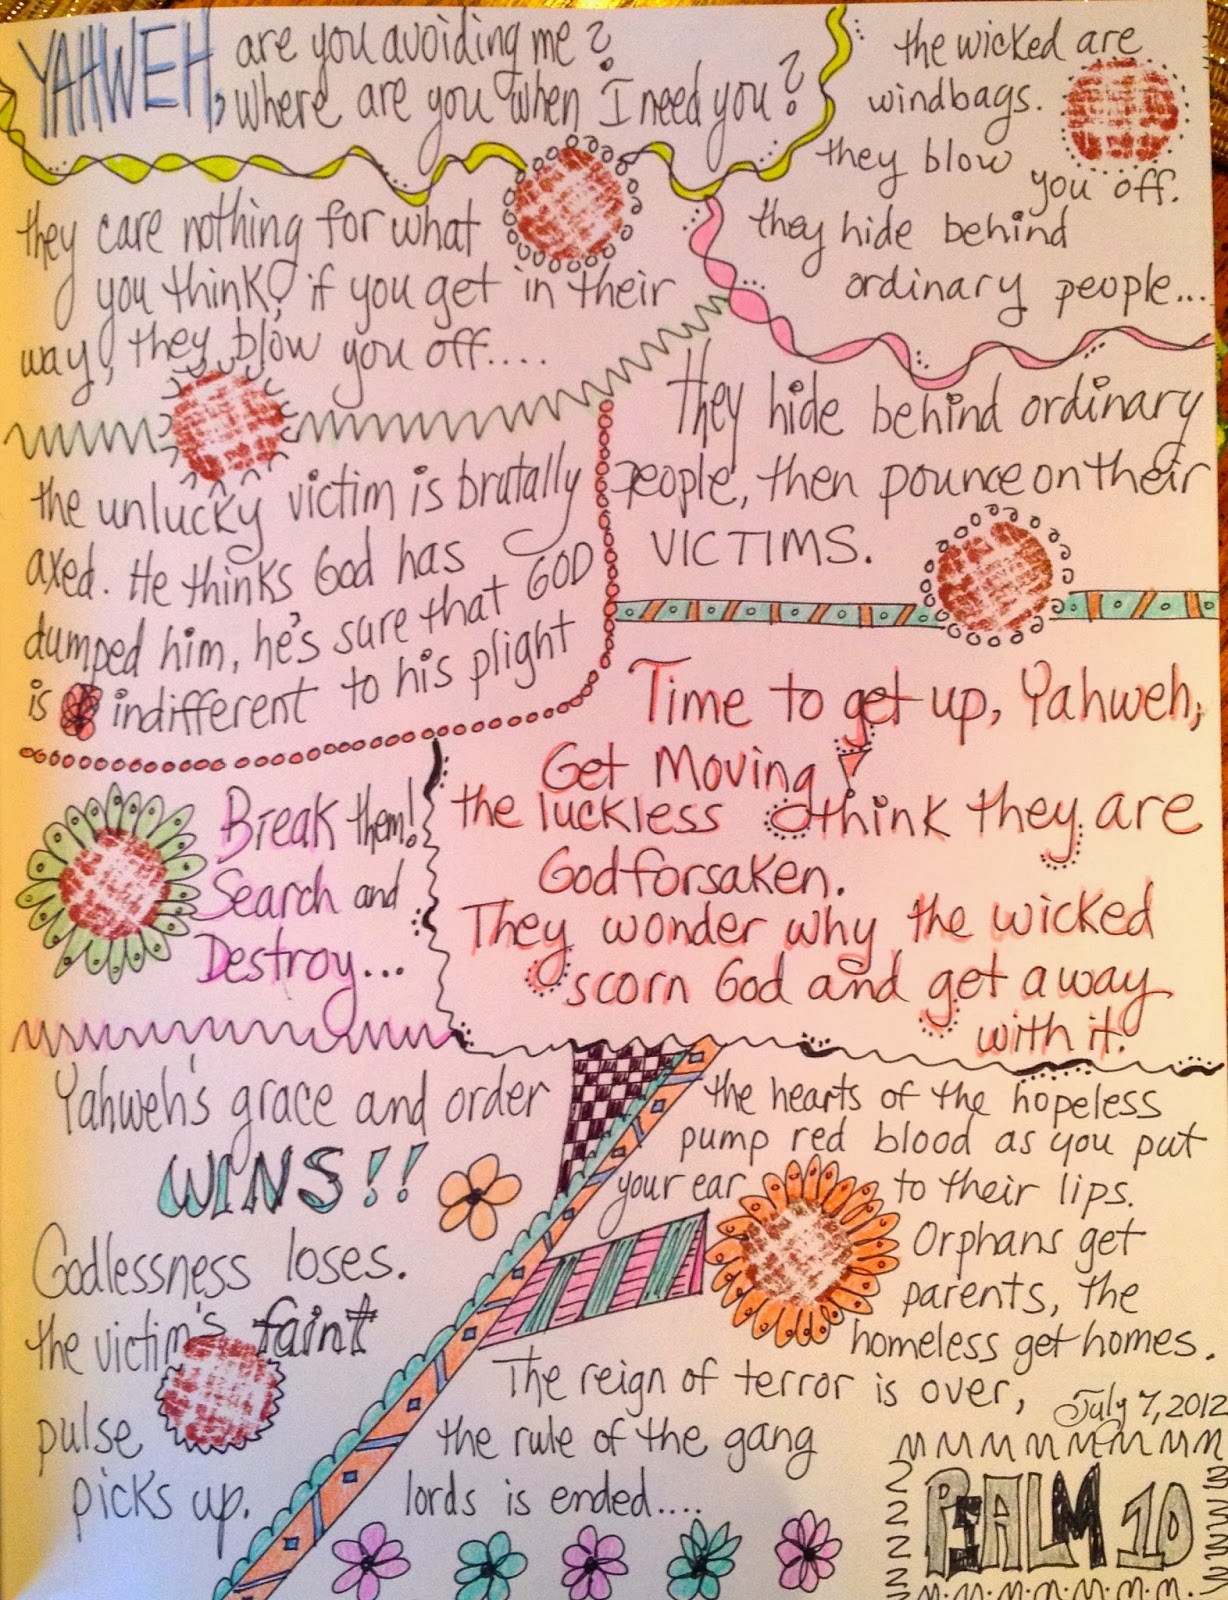 YAHWEH, are you avoiding me?
Where are you when I need you?
the wicked are
windbags.
they blow
you off.
they hide behind
ordinary people...
they care nothing for what
you think, if you get in their
way, they blow you off....
They hide behind ordinary
people, then pounce on their
VICTIMS.
the unlucky victim is brutally
axed. He thinks God has
dumped him, he's sure that GOD
is indifferent to his plight
Time to get up, Yahweh,
Get Moving
the luckless think they are
Godforsaken.
They wonder why the wicked
scorn God and get away
with it.
Break them!
Search and
Destroy...
Yahweh's grace and order
WINS!!
Godlessness loses.
the victim's faint
pulse
picks up.
the hearts of the hopeless
pump red blood as you put
your ear to their lips.
Orphans get
parents, the
homeless get homes.
The reign of terror is over,
the rule of the gang
lords is ended....
July 7, 2012
PSALM 10